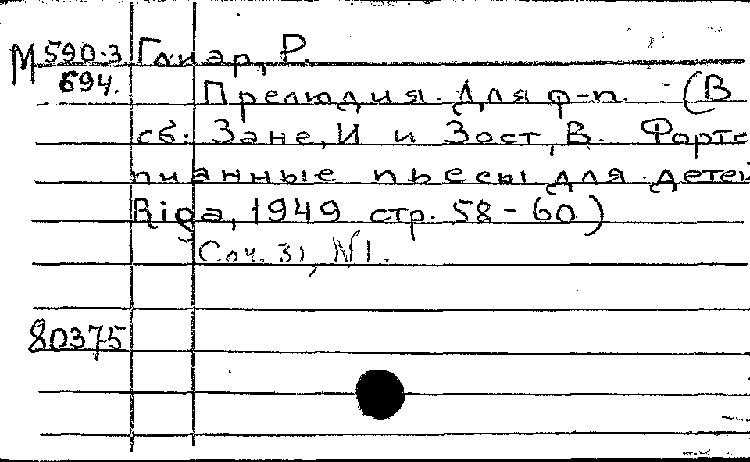 М 590-3 Глиэр, Р.
694.
Прелюдия. Для ф-п. (В
сб: Зане, И и Зост, В. Форте
пианные пьесы для детей
Riga, 1949 стр. 58-60)
Соч. 31, N1.
80375